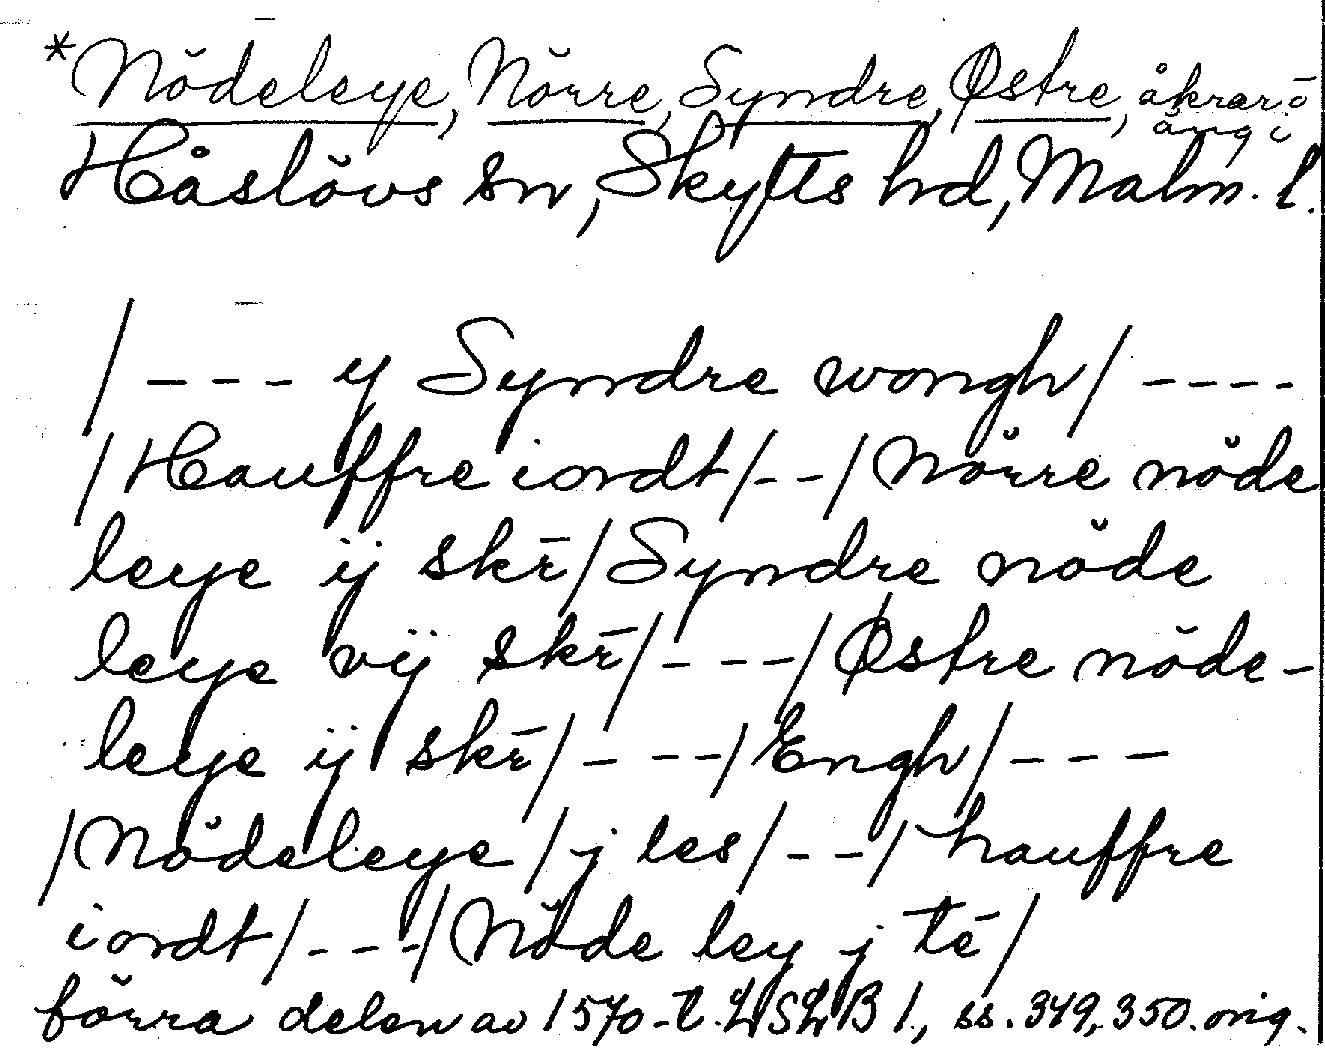 *Nödeleye, Nörre, Syndre, Østre, åkrar o
äng i
Håslövs sn, Skytts hd, Malm. l.
/--- y Syndre wongh/ ----
/Hauffre iordt/--/Nörre nöde
leye ij skr̄/Syndre nöde
leye vij skr̄/---/Østre nöde-
leye ij skr̄/---/Engh/---
/Nödeleye/j les/--/hauffre
iordt/---/Nöde ley j tē/
förra delen av 1570-t. LSLB 1, ss. 349, 350. orig.